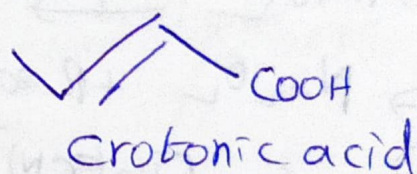 COOH
Crotonic acid